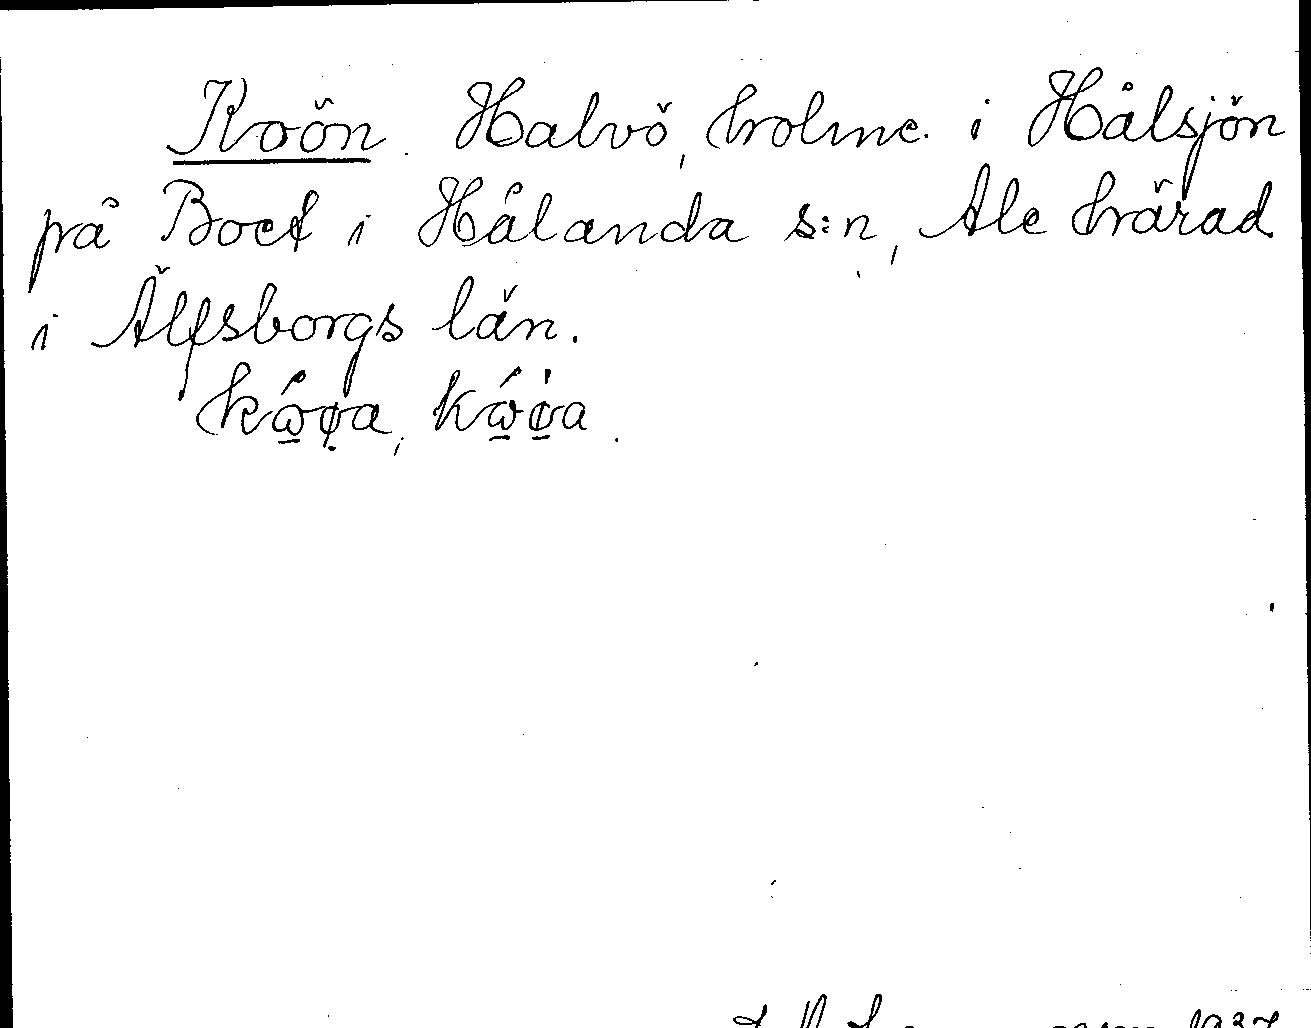 Koön. Halvö, holme. i Hålsjön
på Boet i Hålanda s:n, Ale härad
i Älfsborgs län.
1937